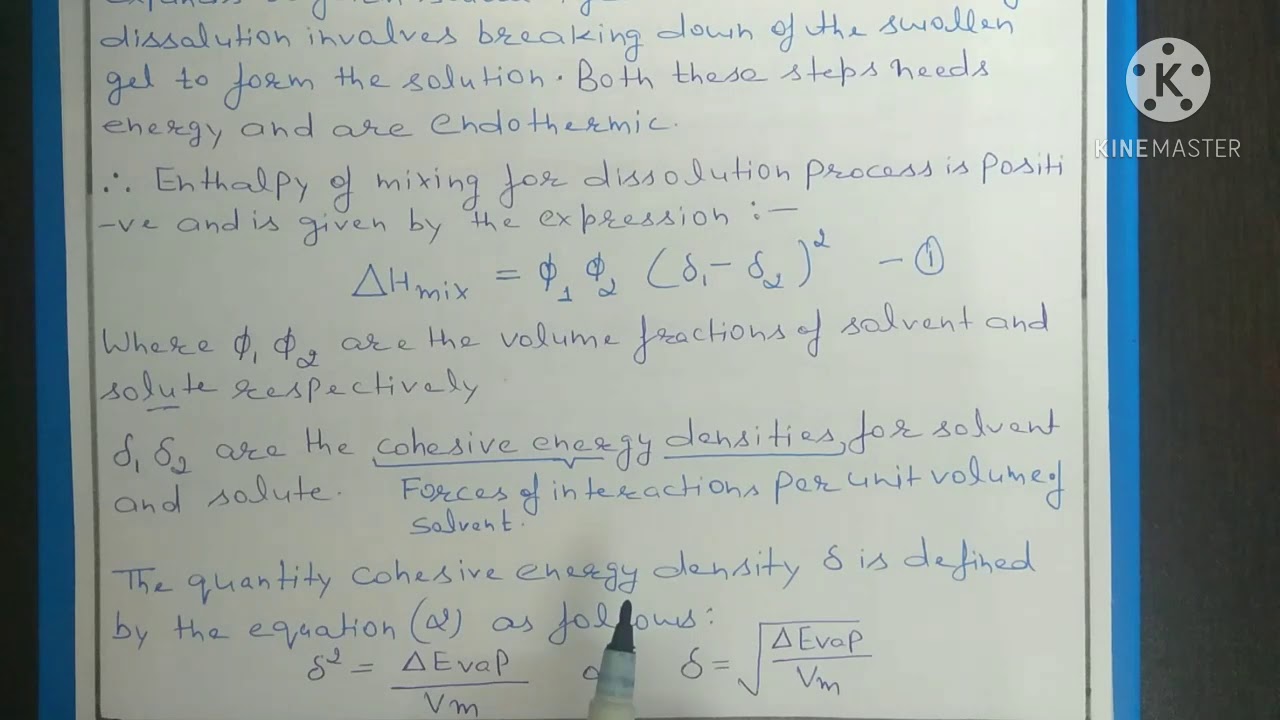 dissalution involves breaking down of the swollen
gel to form the solution. Both these steps needs
energy and are endothermic.
∴ Enthalpy of mixing for dissolution process is positi
-ve and is given by the expression :-
ΔHmix = ϕ₁ ϕ₂ (δ₁ - δ₂)² - ①
Where ϕ₁ ϕ₂ are the volume fractions of solvent and
solute respectively
δ₁ δ₂ are the cohesive energy densities, for solvent
and solute. Forces of interactions per unit volume of
solvent.
The quantity cohesive energy density δ is defined
by the equation (2) as follows:
δ² = ΔEvap / Vm δ = √ΔEvap / Vm
K
KINEMASTER